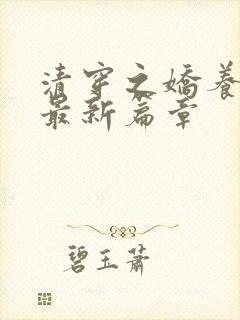 清穿之嬌養
最新篇章
碧玉蕭